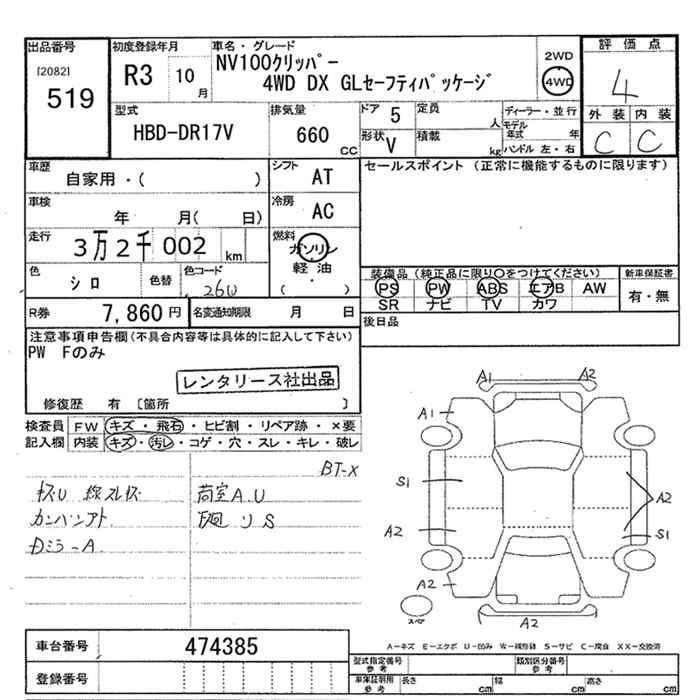 出品番号
[2082]
519
初度登録年月
R3 10 月
車名・グレード
NV100クリッパー
4WD DX GLセーフティパッケージ
2WD
4WD
評価点
4
外装 内装
C C
型式
HBD-DR17V
排気量
660 CC
ドア 5
形状 V
定員 人
積載 kg
ディーラー・並行
モデル年式 年
ハンドル 左・右
車歴
自家用・( )
シフト AT
車検
年 月( 日)
冷房 AC
走行
3万2千002 km
燃料
ガソリン
軽油
( )
色
シロ
色替
色コード
26U
R券 7,860円
名変通知期限 月 日
セールスポイント (正常に機能するものに限ります)
装備品 (純正品に限り○をつけてください)
PS PW ABS エアB AW
SR ナビ TV カワ
新車保証書
有・無
後日品
注意事項申告欄(不具合内容等は具体的に記入して下さい)
PW Fのみ
レンタリース社出品
修復歴 有 [箇所 ]
検査員 FW キズ・飛石・ヒビ割・リペア跡・×要
記入欄 内装 キズ・汚レ・コゲ・穴・スレ・キレ・破レ
BT-X
線スレ
荷室A.U
カンバンアト
S
ミラ-A
A1 A2
A1
S1
A2
A2
S1
A2
A2
スペア
A-キズ E-エクボ U-凹み W-補修跡 S-サビ C-腐食 XX-交換済
車台番号 474385
登録番号
型式指定番号 参考
類別区分番号 参考
車庫証明用 参考
長さ cm 幅 cm 高さ cm